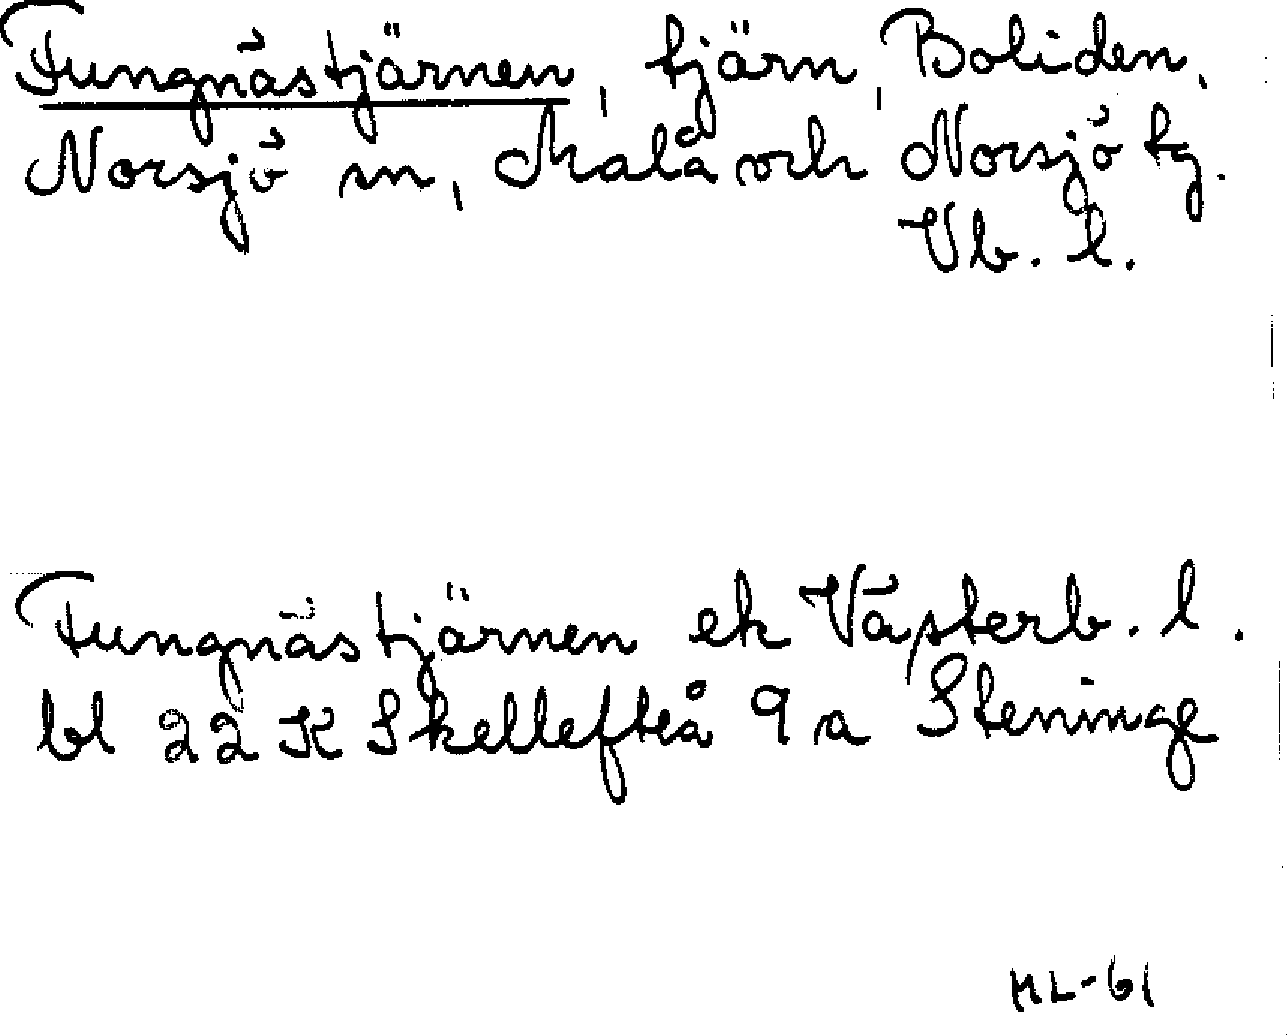 Fungnästjärnen, tjärn, Boliden,
Norsjö sn, Malå och Norsjö tg.
Vb. l.
Fungnästjärnen ek Västerb. l.
bl 22 K Skellefteå 9 a Steninge
ML-61